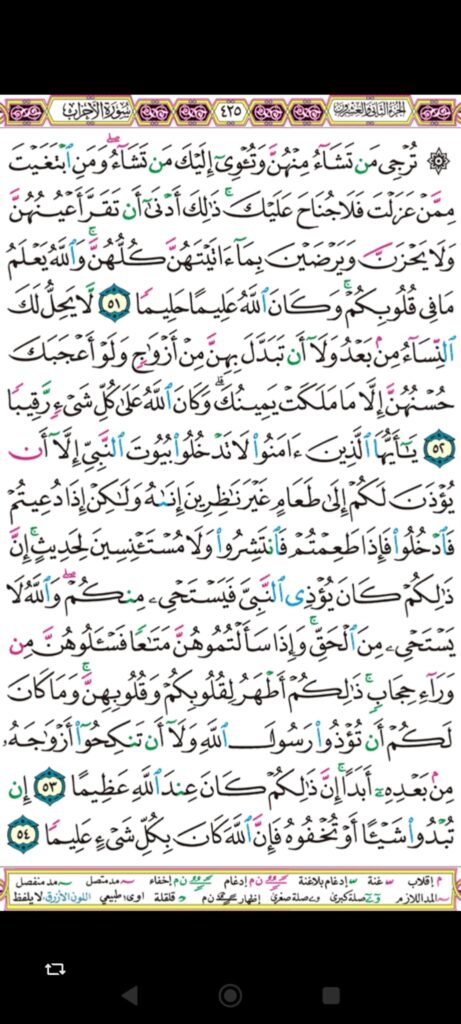 الجزء الثاني والعشرون ٤٢٥ سورة الأحزاب
۞ تُرْجِي مَن تَشَآءُ مِنْهُنَّ وَتُـْٔوِيٓ إِلَيْكَ مَن تَشَآءُۖ وَمَنِ ٱبْتَغَيْتَ
مِمَّنْ عَزَلْتَ فَلَا جُنَاحَ عَلَيْكَۚ ذَٰلِكَ أَدْنَىٰٓ أَن تَقَرَّ أَعْيُنُهُنَّ
وَلَا يَحْزَنَّ وَيَرْضَيْنَ بِمَآ ءَاتَيْتَهُنَّ كُلُّهُنَّۚ وَٱللَّهُ يَعْلَمُ
مَا فِي قُلُوبِكُمْۚ وَكَانَ ٱللَّهُ عَلِيمًا حَلِيمًا ٥١ لَّا يَحِلُّ لَكَ
ٱلنِّسَآءُ مِنۢ بَعْدُ وَلَآ أَن تَبَدَّلَ بِهِنَّ مِنْ أَزْوَٰجٍ وَلَوْ أَعْجَبَكَ
حُسْنُهُنَّ إِلَّا مَا مَلَكَتْ يَمِينُكَۗ وَكَانَ ٱللَّهُ عَلَىٰ كُلِّ شَيْءٍ رَّقِيبًا
٥٢ يَٰٓأَيُّهَا ٱلَّذِينَ ءَامَنُوا۟ لَا تَدْخُلُوا۟ بُيُوتَ ٱلنَّبِيِّ إِلَّآ أَن
يُؤْذَنَ لَكُمْ إِلَىٰ طَعَامٍ غَيْرَ نَٰظِرِينَ إِنَىٰهُ وَلَٰكِنْ إِذَا دُعِيتُمْ
فَٱدْخُلُوا۟ فَإِذَا طَعِمْتُمْ فَٱنتَشِرُوا۟ وَلَا مُسْتَـْٔنِسِينَ لِحَدِيثٍۚ إِنَّ
ذَٰلِكُمْ كَانَ يُؤْذِي ٱلنَّبِيَّ فَيَسْتَحْيِۦ مِنكُمْۖ وَٱللَّهُ لَا
يَسْتَحْيِۦ مِنَ ٱلْحَقِّۚ وَإِذَا سَأَلْتُمُوهُنَّ مَتَٰعًا فَسْـَٔلُوهُنَّ مِن
وَرَآءِ حِجَابٍۚ ذَٰلِكُمْ أَطْهَرُ لِقُلُوبِكُمْ وَقُلُوبِهِنَّۚ وَمَا كَانَ
لَكُمْ أَن تُؤْذُوا۟ رَسُولَ ٱللَّهِ وَلَآ أَن تَنكِحُوٓا۟ أَزْوَٰجَهُۥ
مِنۢ بَعْدِهِۦٓ أَبَدًاۚ إِنَّ ذَٰلِكُمْ كَانَ عِندَ ٱللَّهِ عَظِيمًا ٥٣ إِن
تُبْدُوا۟ شَيْـًٔا أَوْ تُخْفُوهُ فَإِنَّ ٱللَّهَ كَانَ بِكُلِّ شَيْءٍ عَلِيمًا ٥٤
م إقلاب غنة إدغام بلاغنة ن م إدغام ن م إخفاء مد متصل مد منفصل
المد اللازم صلة كبرى صلة صغرى إظهار ن م قلقلة اوى طبيعي اللون الأزرق لا يلفظ